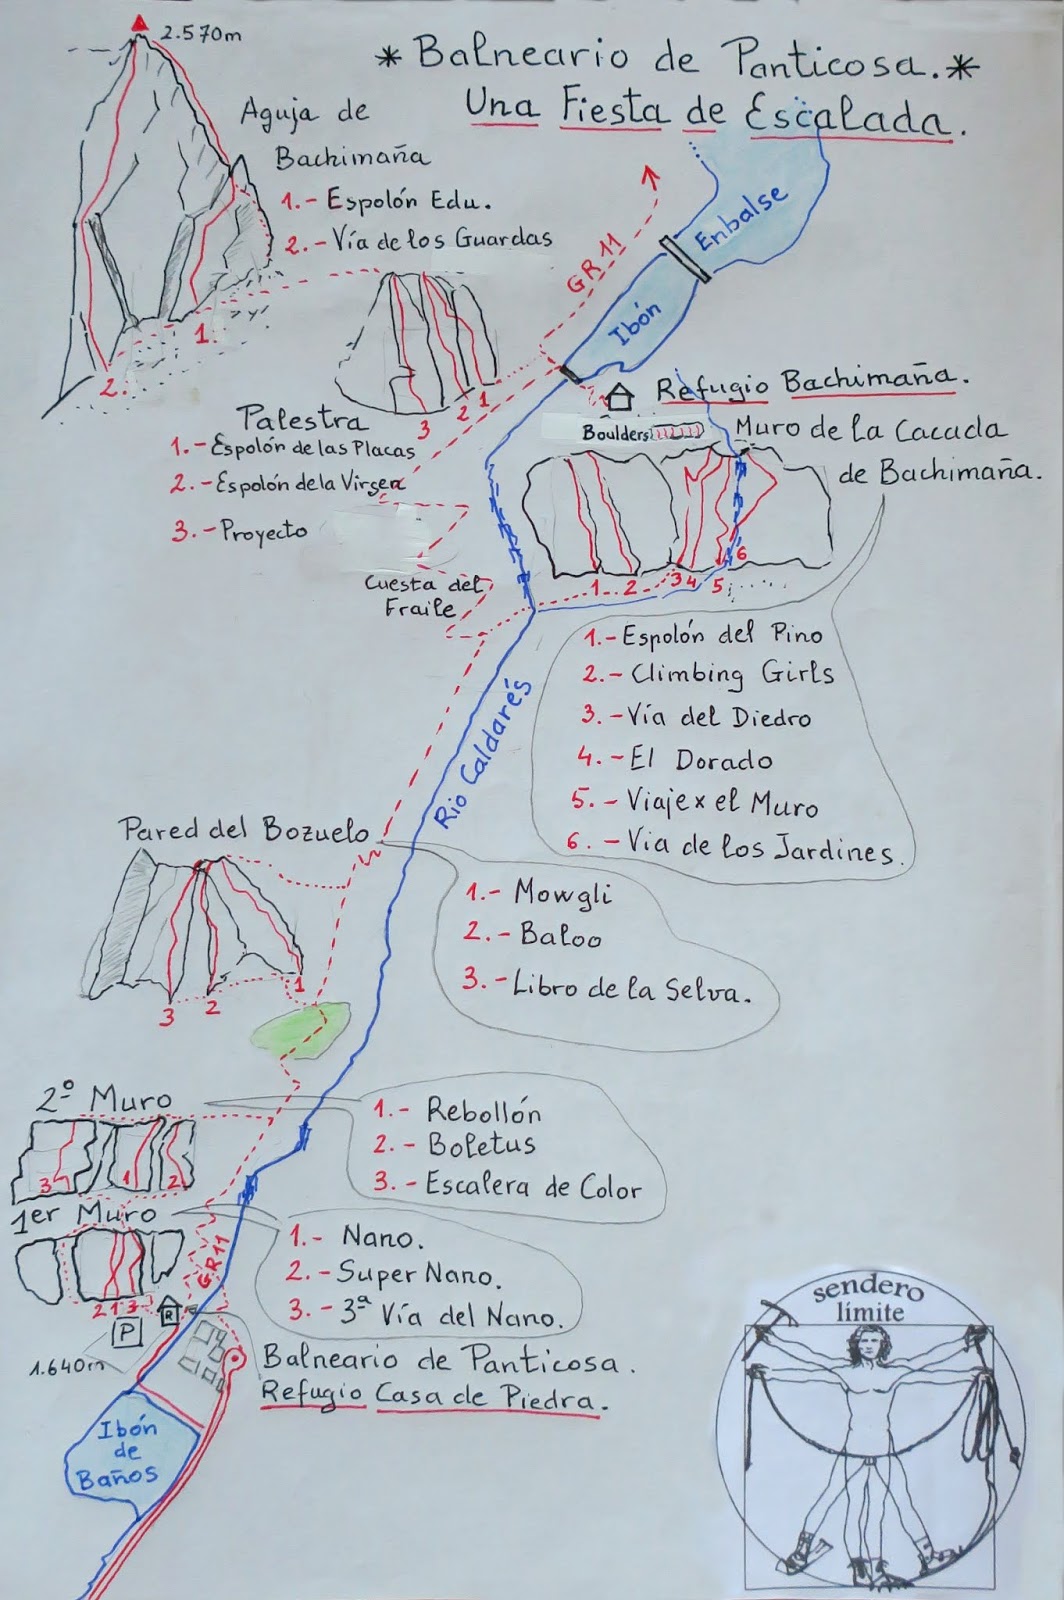 * Balneario de Panticosa. *
Una Fiesta de Escalada.
2.570m
Aguja de
Bachimaña
1.- Espolón Edu.
2.- Vía de los Guardas
1.
2.
GR 11
Enbalse
Ibón
Refugio Bachimaña.
Boulders
Muro de la Cacada
de Bachimaña.
1 2 3 4 5 6
1.- Espolón del Pino
2.- Climbing Girls
3.- Vía del Diedro
4.- El Dorado
5.- Viaje x el Muro
6.- Via de los Jardines.
3 2 1
Palestra
1.- Espolón de las Placas
2.- Espolón de la Virgen
3.- Proyecto
Cuesta del
Fraile
Rio Caldarés
Pared del Bozuelo
3 2 1
1.- Mowgli
2.- Baloo
3.- Libro de la Selva.
2º Muro
3 1 2
1.- Rebollón
2.- Boletus
3.- Escalera de Color
1er Muro
2 1 3
GR 11
1.- Nano.
2.- Super Nano.
3.- 3ª Vía del Nano.
P
R
1.640m
Balneario de Panticosa.
Refugio Casa de Piedra.
Ibón
de
Baños
sendero
límite